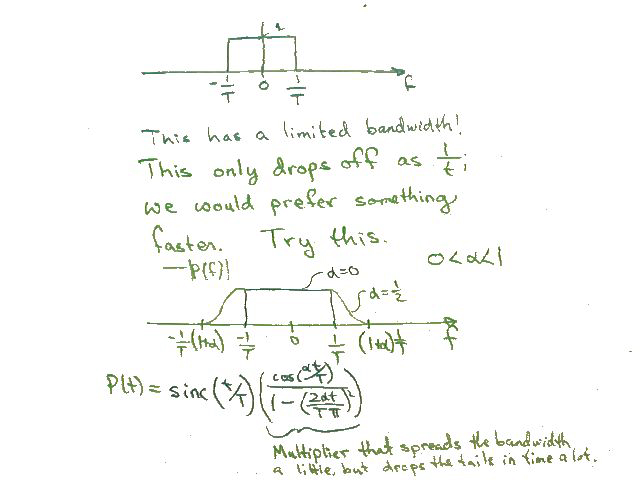 1
f
-1/T 0 1/T
This has a limited bandwidth!
This only drops off as 1/t;
we would prefer something
faster. Try this.
|P(f)|
0<α<1
α=0
α=1/2
-1/T(1+α) -1/T 0 1/T (1+α)1/T f
P(t) = sinc(t/T) (cos(αt/T) / (1-(2αt/Tπ)²))
Multiplier that spreads the bandwidth
a little, but drops the tails in time a lot.